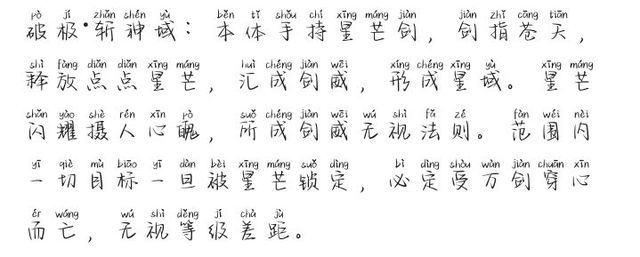 pò jí zhǎn shén yù běn tǐ shǒu chí xīng máng jiàn jiàn zhǐ cāng tiān
破极·斩神域：本体手持星芒剑，剑指苍天，
shì fàng diǎn diǎn xīng máng huì chéng jiàn wēi xíng chéng xīng yù xīng máng
释放点点星芒，汇成剑威，形成星域。星芒
shǎn yào shè rén xīn pò suǒ chéng jiàn wēi wú shì fǎ zé fàn wéi nèi
闪耀摄人心魄，所成剑威无视法则。范围内
yī qiè mù biāo yī dàn bèi xīng máng suǒ dìng bì dìng shòu wàn jiàn chuān xīn
一切目标一旦被星芒锁定，必定受万剑穿心
ér wáng wú shì děng jí chā jù
而亡，无视等级差距。